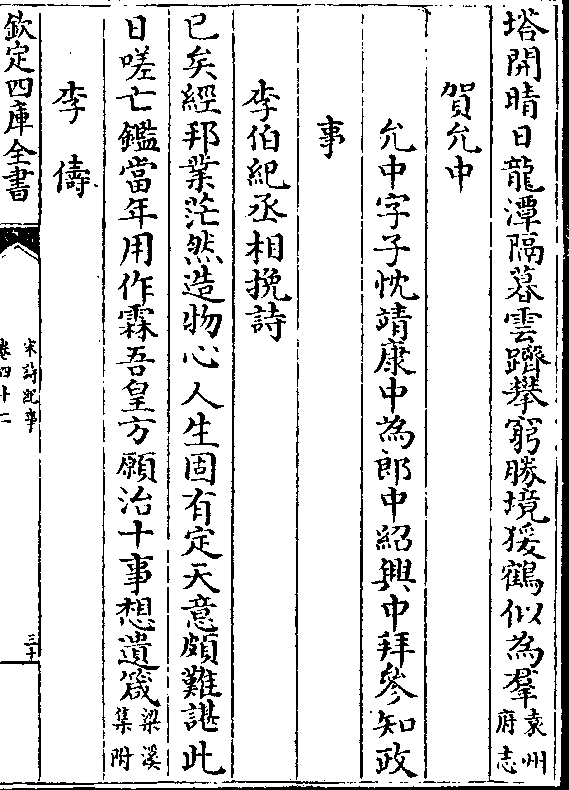 塔開晴日龍潭隔暮雲躋攀窮勝境猨鶴似為羣袁州府志
賀允中
允中字子忱靖康中為郎中紹興中拜參知政
事
李伯紀丞相挽詩
已矣經邦業茫然造物心人生固有定天意頗難諶此
日嗟亡鑑當年用作霖吾皇方願治十事想遺箴梁溪集附
李燾
欽定四庫全書
宋詩紀事
卷四十二
三十